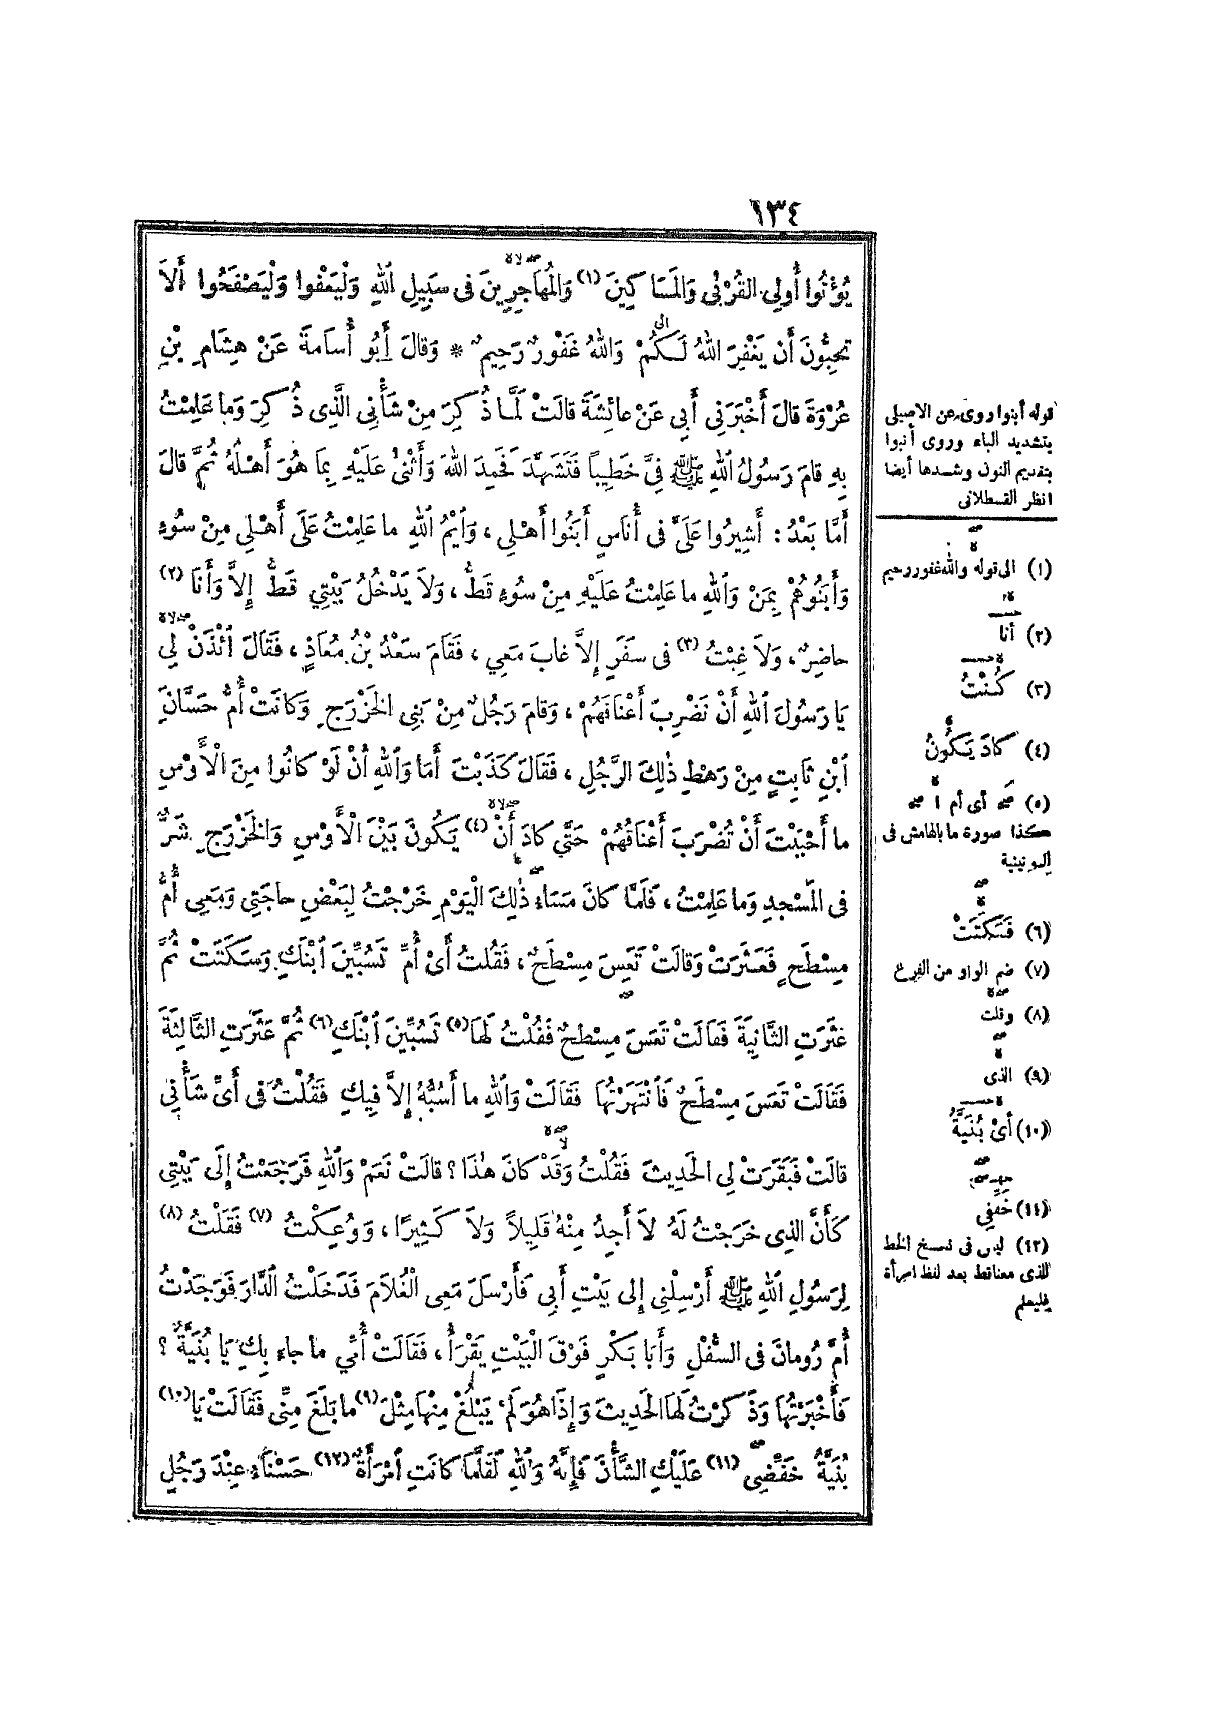 ١٣٤
يُؤْتُوا أُولِي الْقُرْبَى وَالْمَسَاكِينَ (١) وَالْمُهَاجِرِينَ فِى سَبِيلِ اللهِ وَلْيَعْفُوا وَلْيَصْفَحُوا أَلاَ
تُحِبُّونَ أَنْ يَغْفِرَ اللهُ لَكُمْ وَاللهُ غَفُورٌ رَحِيمٌ * وَقَالَ أَبُو أُسَامَةَ عَنْ هِشَامِ بْنِ
عُرْوَةَ قَالَ أَخْبَرَنِى أَبِى عَنْ عَائِشَةَ قَالَتْ لَمَّا ذُكِرَ مِنْ شَأْنِى الَّذِى ذُكِرَ وَمَا عَلِمْتُ
بِهِ قَامَ رَسُولُ اللهِ ﷺ فِىَّ خَطِيبًا فَتَشَهَّدَ فَحَمِدَ اللهَ وَأَثْنَى عَلَيْهِ بِمَا هُوَ أَهْلُهُ ثُمَّ قَالَ
أَمَّا بَعْدُ : أَشِيرُوا عَلَىَّ فِى أُنَاسٍ أَبَنُوا أَهْلِى ، وَأَيْمُ اللهِ مَا عَلِمْتُ عَلَى أَهْلِى مِنْ سُوءٍ
وَأَبَنُوهُمْ بِمَنْ وَاللهِ مَا عَلِمْتُ عَلَيْهِ مِنْ سُوءٍ قَطُّ ، وَلاَ يَدْخُلُ بَيْتِى قَطُّ إِلاَّ وَأَنَا (٢)
حَاضِرٌ ، وَلاَ غِبْتُ (٣) فِى سَفَرٍ إِلاَّ غَابَ مَعِى ، فَقَامَ سَعْدُ بْنُ مُعَاذٍ ، فَقَالَ ائْذَنْ لِى
يَا رَسُولَ اللهِ أَنْ نَضْرِبَ أَعْنَاقَهُمْ ، وَقَامَ رَجُلٌ مِنْ بَنِى الْخَزْرَجِ وَكَانَتْ أُمُّ حَسَّانَ
ابْنِ ثَابِتٍ مِنْ رَهْطِ ذٰلِكَ الرَّجُلِ ، فَقَالَ كَذَبْتَ أَمَا وَاللهِ أَنْ لَوْ كَانُوا مِنَ الْأَوْسِ
مَا أَحْبَبْتَ أَنْ تُضْرَبَ أَعْنَاقُهُمْ حَتَّى كَادَ أَنْ (٤) يَكُونَ بَيْنَ الْأَوْسِ وَالْخَزْرَجِ شَرٌّ
فِى الْمَسْجِدِ وَمَا عَلِمْتُ ، فَلَمَّا كَانَ مَسَاءُ ذٰلِكَ الْيَوْمِ خَرَجْتُ لِبَعْضِ حَاجَتِى وَمَعِى أُمُّ
مِسْطَحٍ فَعَثَرَتْ وَقَالَتْ تَعَسَ مِسْطَحٌ ، فَقُلْتُ أَىْ أُمِّ تَسُبِّينَ ابْنَكِ وَسَكَتَتْ ثُمَّ
عَثَرَتِ الثَّانِيَةَ فَقَالَتْ تَعَسَ مِسْطَحٌ فَقُلْتُ لَهَا (٥) تَسُبِّينَ ابْنَكِ (٦) ثُمَّ عَثَرَتِ الثَّالِثَةَ
فَقَالَتْ تَعَسَ مِسْطَحٌ فَانْتَهَرْتُهَا فَقَالَتْ وَاللهِ مَا أَسُبُّهُ إِلاَّ فِيكِ فَقُلْتُ فِى أَىِّ شَأْنِى
قَالَتْ فَبَقَرَتْ لِى الْحَدِيثَ فَقُلْتُ وَقَدْ كَانَ هٰذَا ؟ قَالَتْ نَعَمْ وَاللهِ فَرَجَعْتُ إِلَى بَيْتِى
كَأَنَّ الَّذِى خَرَجْتُ لَهُ لاَ أَجِدُ مِنْهُ قَلِيلاً وَلاَ كَثِيرًا ، وَوُعِكْتُ (٧) فَقُلْتُ (٨)
لِرَسُولِ اللهِ ﷺ أَرْسِلْنِى إِلَى بَيْتِ أَبِى فَأَرْسَلَ مَعِى الْغُلاَمَ فَدَخَلْتُ الدَّارَ فَوَجَدْتُ
أُمَّ رُومَانَ فِى السُّفْلِ وَأَبَا بَكْرٍ فَوْقَ الْبَيْتِ يَقْرَأُ ، فَقَالَتْ أُمِّى مَا جَاءَ بِكِ يَا بُنَيَّةُ ؟
فَأَخْبَرْتُهَا وَذَكَرْتُ لَهَا الْحَدِيثَ وَإِذَا هُوَ لَمْ يَبْلُغْ مِنْهَا مِثْلَ (٩) مَا بَلَغَ مِنِّى فَقَالَتْ يَا (١٠)
بُنَيَّةُ خَفِّضِى (١١) عَلَيْكِ الشَّأْنَ فَإِنَّهُ وَاللهِ لَقَلَّمَا كَانَتِ امْرَأَةٌ (١٢) حَسْنَاءُ عِنْدَ رَجُلٍ
قوله أبنوا روى عن الاصيلى
بتشديد الباء وروى أنبوا
بتقديم النون وشدها أيضا
انظر القسطلانى
(١) الى قوله والله غفور رحيم
(٢) أنا
(٣) كُنْتُ
(٤) كَادَ يَكُونُ
(٥) أى أم
هكذا صورة ما بالهامش فى
اليونينية
(٦) فَسَكَتَتْ
(٧) ضم الواو من الفرع
(٨) وقلت
(٩) الذى
(١٠) أَىْ بُنَيَّةُ
(١١) خَفِّفِى
(١٢) ليس فى نسخ الخط
الذى معنا قط بعد لفظ امرأة
فليعلم